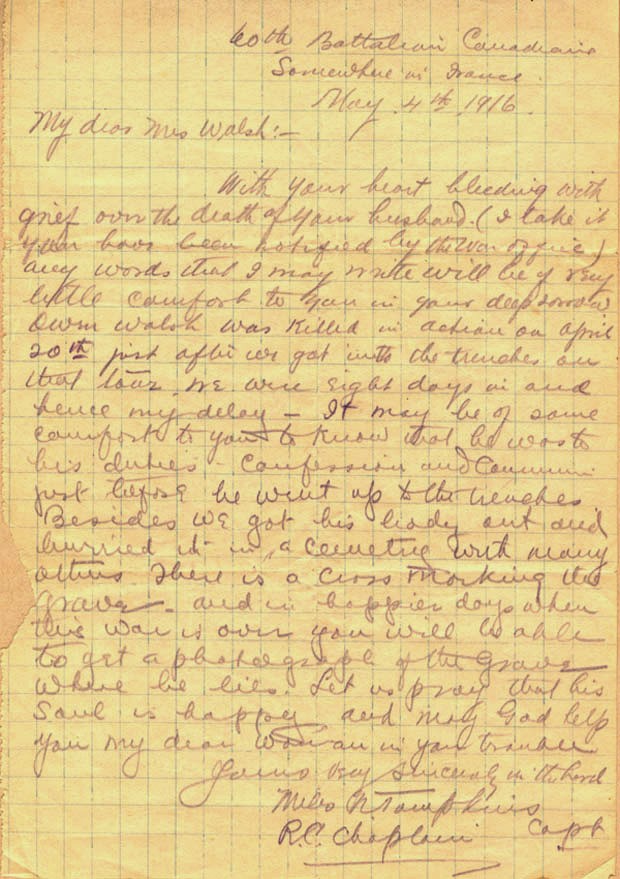 60th Battalion Canadians
Somewhere in France.
May. 4th. 1916.
My dear Mrs Walsh:-
With your heart bleeding with
grief over the death of your husband. (I take it
you have been notified by the War office)
any words that I may write will be of very
little comfort to you in your deep sorrow
Owen Walsh was killed in action on April
20th just after we got into the trenches on
that tour. We were eight days in and
hence my delay - It may be of some
comfort to you to know that he was to
his duties - Confession and Communion
just before he went up to the trenches
Besides we got his body out and
burried it in a cemetry with many
others There is a cross marking the
grave - and in happier days when
this war is over you will be able
to get a photograph of the grave
where he lies. Let us pray that his
soul is happy and may God help
you my dear woman in your trouble
Yours very sincerely in the Lord
Miles N. Tompkins
Capt
R.C. Chaplain